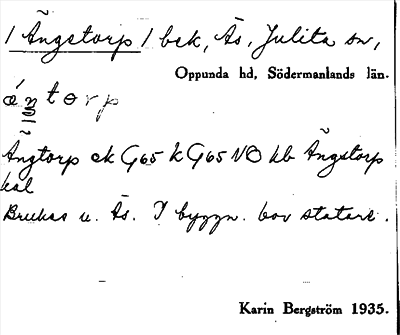 / Ängstorp / bsk, Ås, Julita sn,
Oppunda hd, Södermanlands län.
torp
Ängtorp ek G65 k G65 NO hb Ängstorp
kal
Brukas u. Ås. I byggn. bor statare.
Karin Bergström 1935.